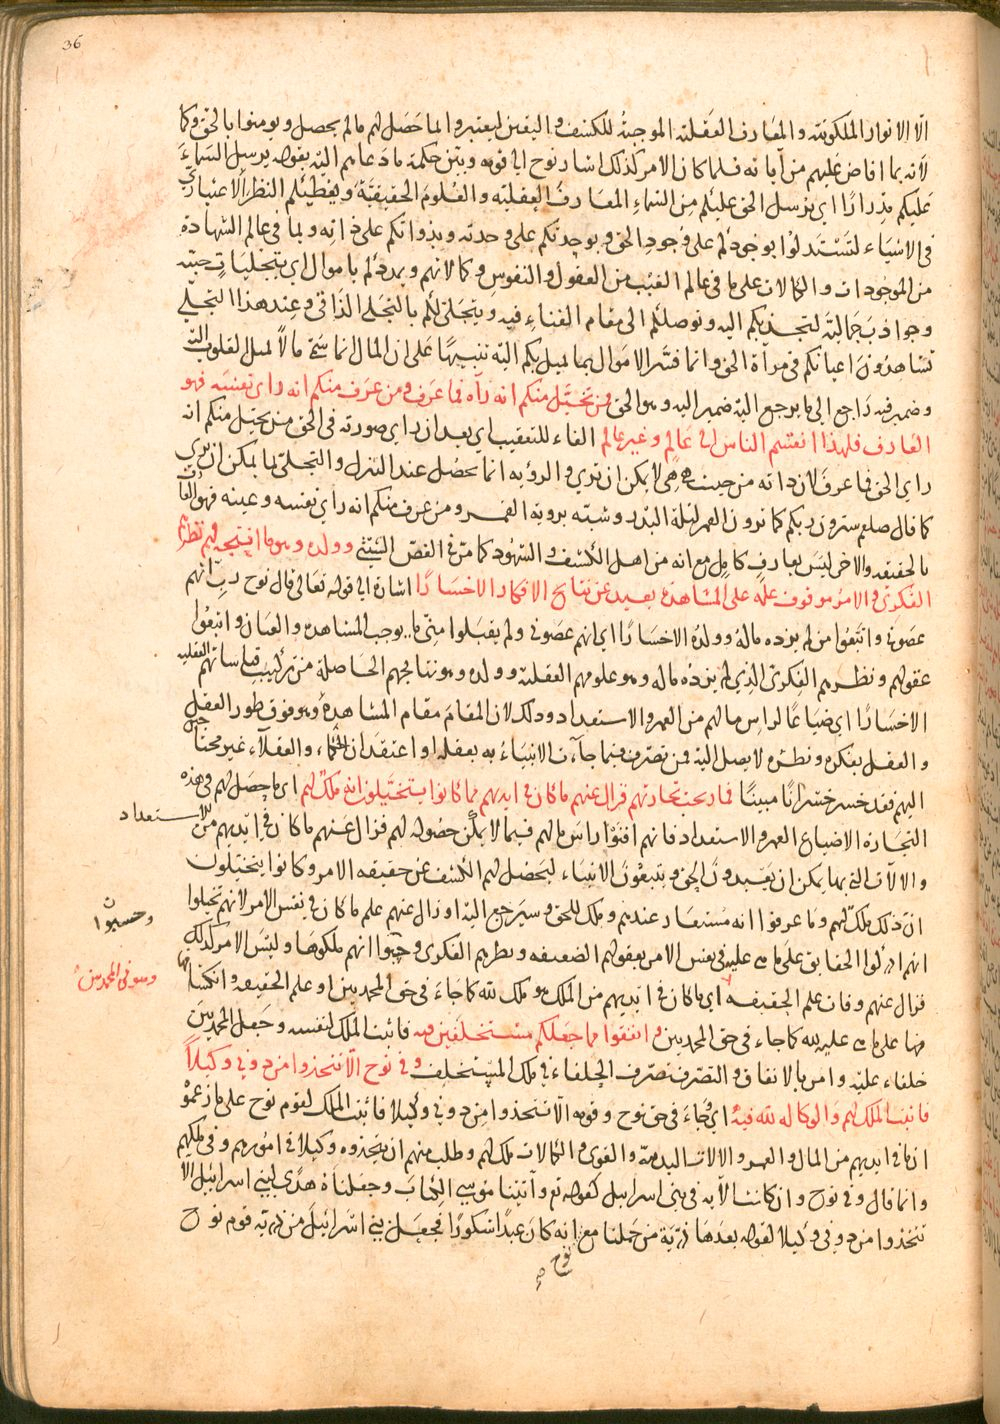 36
الّا الانوار الملكوتية والمعارف العقلية الموجبة للكشف واليقين ليعتبروا لما حصل لهم ما لم يحصل ويومنوا بالحق وكما
لانه بما افاض عليهم من آياته فلما كان الامر كذلك اشار نوح الى قومه وبيّن حكمة ما دعاهم اليه بقوله يرسل السماء
عليكم مدرارًا اى يرسل الحق عليكم من السماء المعارف العقلية والعلوم الحقيقية ويعطيكم النظر الاعتبارى
فى الاشياء لتستدلوا بوجودكم على وجود الحق وبوحدتكم على وحدته وبذواتكم على ذاته وبما فى عالم الشهادة
من الموجودات والكمالات على ما فى عالم الغيب من العقول والنفوس وكمالاتهم ويمددكم باموال اى بتجليات حبية
وجواذب جمالية لتجذبكم اليه وتوصلكم الى مقام الفناء فيه ويتجلى لكم بالتجلى الذاتى وعند هذا التجلى
تشاهدون اعيانكم فى مرآة الحق وانما فسّر الاموال بما يميل بكم اليه تنبيهًا على ان المال انما سمّى مالًا لميل القلوب اليه
وضمير فيه راجع الى ما يرجع اليه ضمير اليه وهو الحق فمن تخيّل منكم انه رآه فما عرف ومن عرف منكم انه راى نفسه فهو
العارف فلهذا انقسم الناس الى عالم وغير عالم الفاء للتعقيب اى بعد ان راى صورته فى الحق من تخيل منكم انه
راى الحق فما عرف لان ذاته من حيث هى هى لا يمكن ان ترى والرؤية انما تحصل عند التنزل والتجلى بما يمكن ان يرى
كما قال صلعم سترون ربكم كما ترون القمر ليلة البدر وشبه بروية القمر ومن عرف منكم انه راى نفسه وعينه فهو العارف
بالحقيقه والاخر ليس بعارف كامل مع انه من اهل الكشف والشهود كما مرّ فى الفصّ الشيثى وولده وهو ما انتجه لهم نظرهم
الفكرى والامر موقوف علمه على المشاهدة بعيد عن نتائج الافكار الا خسارًا اشارة الى قوله تعالى قال نوح رب انهم
عصونى واتبعوا من لم يزده ماله وولده الا خسارًا اى انهم عصونى ولم يقبلوا منّى ما يوجب المشاهده والعيان واتبعوا
عقولهم ونظرهم الفكرى الذى لم يزده ماله وهو علومهم العقلية وولده وهو نتائجهم الحاصلة من تركيب قياساتهم العقليه
الا خسارًا اى ضياعًا لراس مالهم من العمر والاستعداد وذلك لان المقام مقام المشاهدة وهو فوق طور العقل
والعقل بفكره ونظره لا يصل اليه فمن تصرف فيما جاءت الانبياء به بعقله او اعتقد ان الحكماء والعقلاء غير محتاجين
اليهم فقد خسر خسرانًا مبينًا فما ربحت تجارتهم فزال عنهم ما كان فى ايديهم مما كانوا يتخيّلون انه ملك لهم اى ما حصل لهم فى هذه
التجارة الا ضياع العمر والاستعداد فانهم افنوا راس مالهم فيما لا يمكن حصوله لهم فزال عنهم ما كان فى ايديهم من الاستعداد
والالات التى بها يمكن ان يعبدون الحق ويتبعون الانبياء ليحصل لهم الكشف عن حقيقه الامر وكانوا يتخيلون
ان ذلك ملك لهم وما عرفوا انه مستعار عندهم وملك للحق وسيرجع اليه او زال عنهم علم ما كان فى نفس الامر لانهم تخيلوا
انهم ادركوا الحقايق على ما هى عليه فى نفس الامر بعقولهم الضعيفه ونظرهم الفكرى وحسبوا انهم ملكوها وليس الامر كذلك
فزال عنهم وفات علم الحقيقه اى ما كان فى ايديهم من الملك هو ملك لله كما جاء فى حق المحمديين او علم الحقيقه وانكشافها
على ما هى عليه لله كما جاء فى حق المحمديين وانفقوا مما جعلكم مستخلفين فيه فاثبت الملك لنفسه وجعل المحمديين
خلفاء عليه وامر بالانفاق والتصرف تصرف الخلفاء فى ملك المستخلف وفى نوح الا تتخذوا من دونى وكيلًا
فاثبت الملك لهم والوكالة لله فيه اى وجاء فى حق نوح وقومه الا تتخذوا من دونى وكيلا فاثبت الملك لقوم نوح على ما زعموا
ان ما فى ايديهم من المال والعمر والالات البدنية والقوى والكمالات ملك لهم وطلب منهم ان يتخذوه وكيلا فى امورهم وفى ملكهم
وانما قال وفى نوح وان كانت الآيه فى بنى اسرايل لقوله تع وآتينا موسى الكتاب وجعلناه هدًى لبنى اسرائيل الا
تتخذوا من دونى وكيلا لقوله بعدها ذرّية من حملنا مع نوح انه كان عبدًا شكورًا فجعل بنى اسرائيل من ذريه قوم نوح
للاستعداد
وحسبوا
وهو فى المحمديين
نوح
صح